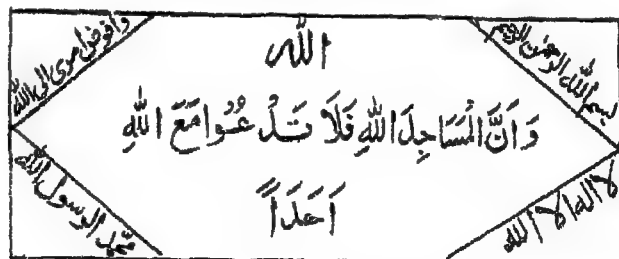 بسم الله الرحمن الرحيم
وافوض امری الی الله
الله
وَاَنَّ الْمَسَاجِدَ اللهِ فَلَا تَدْعُوا مَعَ اللهِ
اَحَدَاً
لا اله الا الله
محمد الرسول الله